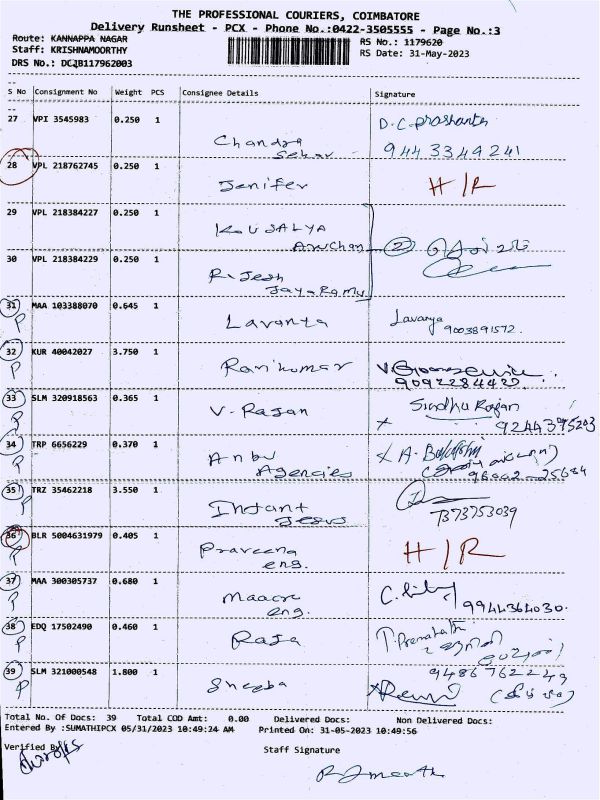 THE PROFESSIONAL COURIERS, COIMBATORE
Delivery Runsheet - PCX - Phone No.:0422-3505555 - Page No.:3
Route: KANNAPPA NAGAR
RS No.: 1179620
Staff: KRISHNAMOORTHY
RS Date: 31-May-2023
DRS No.: DCJB117962003
S No Consignment No Weight PCS Consignee Details Signature
27 VPI 3545983 0.250 1 Chandra Sekar D.C. Prashanth 9443349241
28 VPL 218762745 0.250 1 Jenifer H/R
29 VPL 218384227 0.250 1 KOUSALYA
30 VPL 218384229 0.250 1 Rajesh Jaya Ramu
31 P MAA 103388070 0.645 1 Lavanya Lavanya 9003891572.
32 P KUR 40042027 3.750 1 Ravikumar
33 P SLM 320918563 0.365 1 V. Rajan Sindhu Rajan 9244395203
34 P TRP 6656229 0.370 1 Anbu Agencies
35 P TRZ 35462218 3.550 1 Infant Jesus 7373753039
36 P BLR 5004631979 0.405 1 Praveena eng. H/R
37 P MAA 300305737 0.680 1 eng. 9944364030.
38 P EDQ 17502490 0.460 1 Raja
39 P SLM 321000548 1.800 1 Sheeba 9486762249
Total No. Of Docs: 39 Total COD Amt: 0.00 Delivered Docs: Non Delivered Docs:
Entered By :SUMATHIPCX 05/31/2023 10:49:24 AM Printed On: 31-05-2023 10:49:56
Verified By
Staff Signature